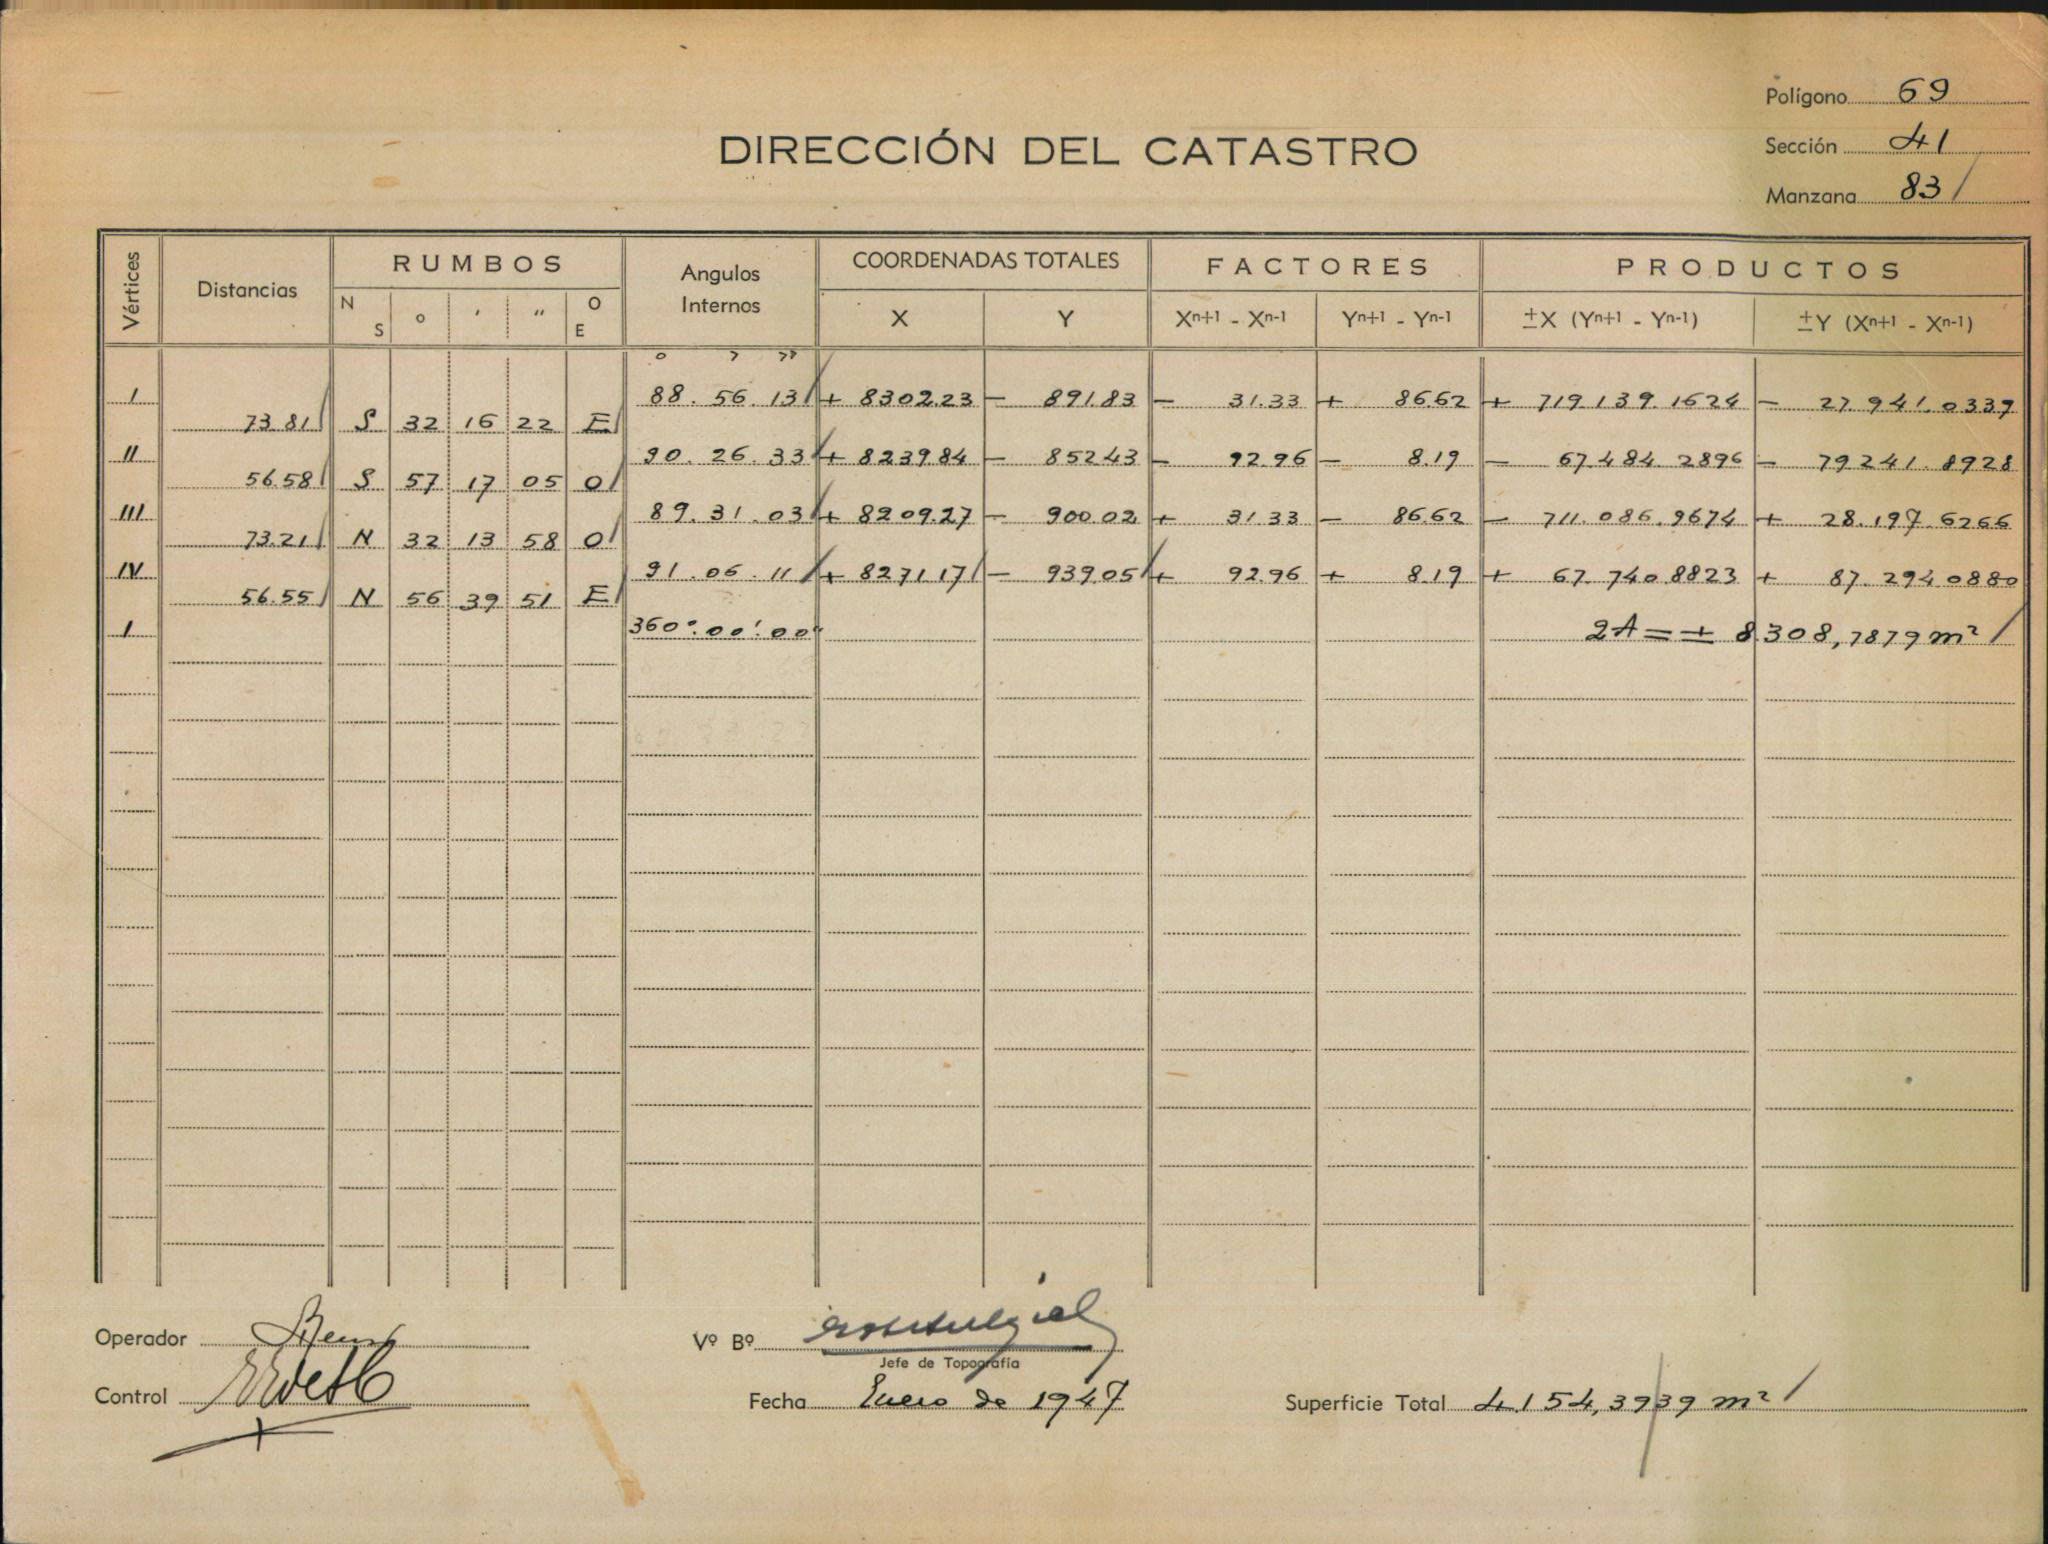 Polígono 69
DIRECCIÓN DEL CATASTRO
Sección 41
Manzana 83
Vértices Distancias RUMBOS Angulos Internos COORDENADAS TOTALES FACTORES PRODUCTOS
N S o ′ ″ O E X Y Xn+1 - Xn-1 Yn+1 - Yn-1 ±X (Yn+1 - Yn-1) ±Y (Xn+1 - Xn-1)
o ′ ″
I 88. 56. 13 + 8302.23 - 891.83 - 31.33 + 86.62 + 719.139.1624 - 27.941.0339
73.81 S 32 16 22 E
II 90. 26. 33 + 8239.84 - 852.43 - 92.96 - 8.19 - 67.484.2896 - 79241.8928
56.58 S 57 17 05 O
III 89. 31. 03 + 8209.27 - 900.02 + 31.33 - 86.62 - 711.086.9674 + 28.197.6266
73.21 N 32 13 58 O
IV 91. 06. 11 + 8271.17 - 939.05 + 92.96 + 8.19 + 67.740.8823 + 87.294.0880
56.55 N 56 39 51 E
I 360°.00′.00″ 2A = + 8308,7879 m²
Operador
Vº Bº
Jefe de Topografía
Control
Fecha Enero de 1947
Superficie Total 4.154,3939 m²